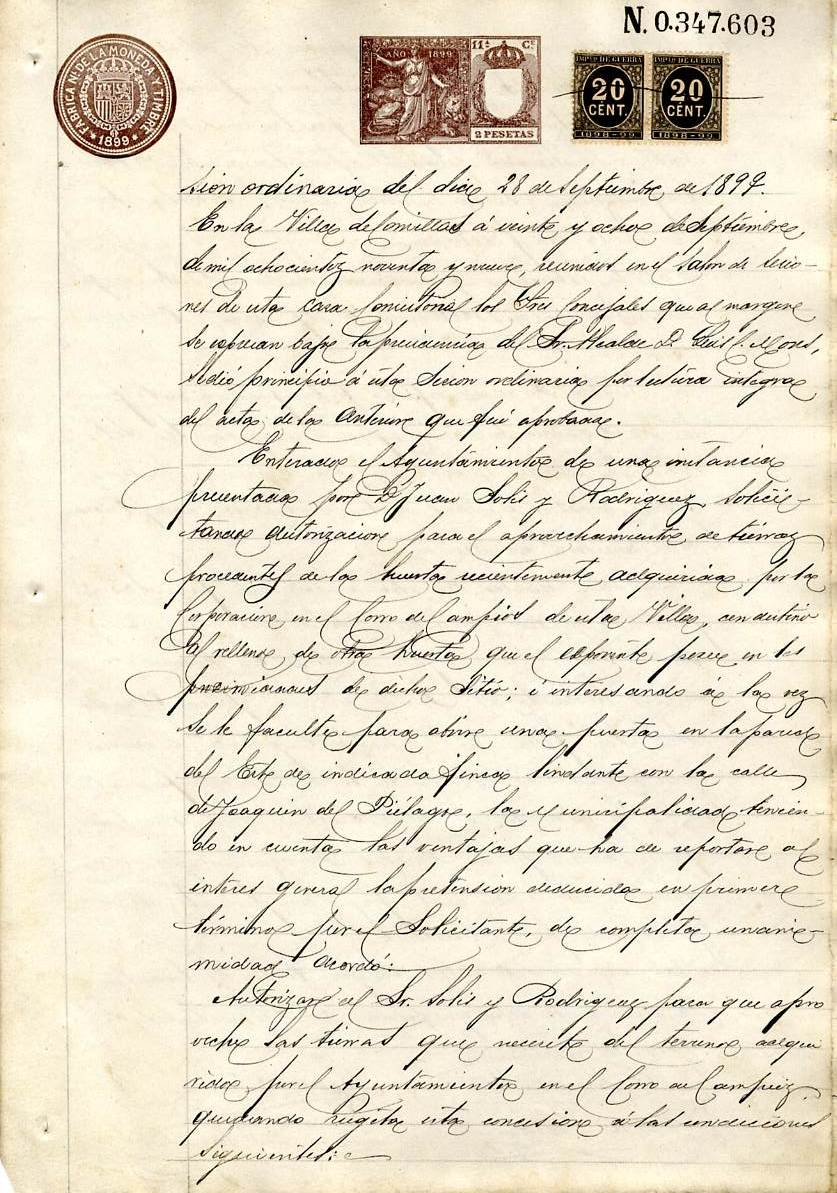 N. 0.347.603
FABRICA NL DE LA MONEDA Y TIMBRE
1899
AÑO 1899
11ª Cº
2 PESETAS
IMPTO DE GUERRA
20
CENT.
1898-99
IMPTO DE GUERRA
20
CENT.
1898-99
sion ordinaria del dia 28 de Septiembre de 1899.
En la Villa de Comillas á veinte y ocho de Septiembre,
de mil ochocientos noventa y nueve, reunidos en el Salon de secio-
nes de esta casa Consistorial los Sres Concejales que al margen
se expresan bajo la presidencia del Sr. Alcalde D. Luis P. Mones,
se dió principio á esta Secion ordinaria por lectura integra
del acta de la anterior que fué aprobada.
Enterado el Ayuntamiento de una instancia
presentada por D Juan Solis y Rodriguez solici-
tando autorizacion para el aprovechamiento de tierras
procedentes de la huerta recientemente adquirida por la
Corporacion en el Corro de Campios de esta Villa, con destino
al relleno de otra huerta que el exponente posee en las
proximidades de dicho Sitio; é interesando á la vez
se le faculte para abrir una puerta en la pared
del Este de indicada finca lindante con la calle
de Joaquin del Piélago, la Municipalidad tenien-
do en cuenta las ventajas que ha de reportar al
interes general la pretension deducida en primer
término por el Solicitante, de completa unani-
midad acordó:
Autorizar al Sr. Solis y Rodriguez para que apro
veche las tierras que necesite del terreno adqui
rido por el Ayuntamiento en el Corro de Campios,
quedando sugeta esta concesion á las condiciones
siguientes: